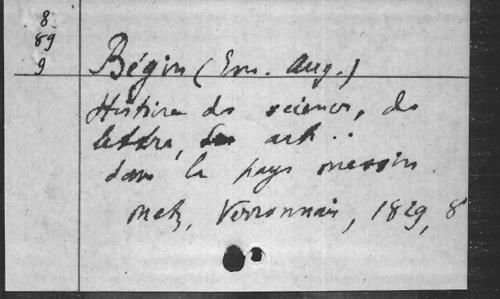 8
89
9
Bégin (Em. Aug.)
Histoire des sciences, des
lettres, des arts ..
dans le pays messin.
Metz, Verronnais, 1829, 8°